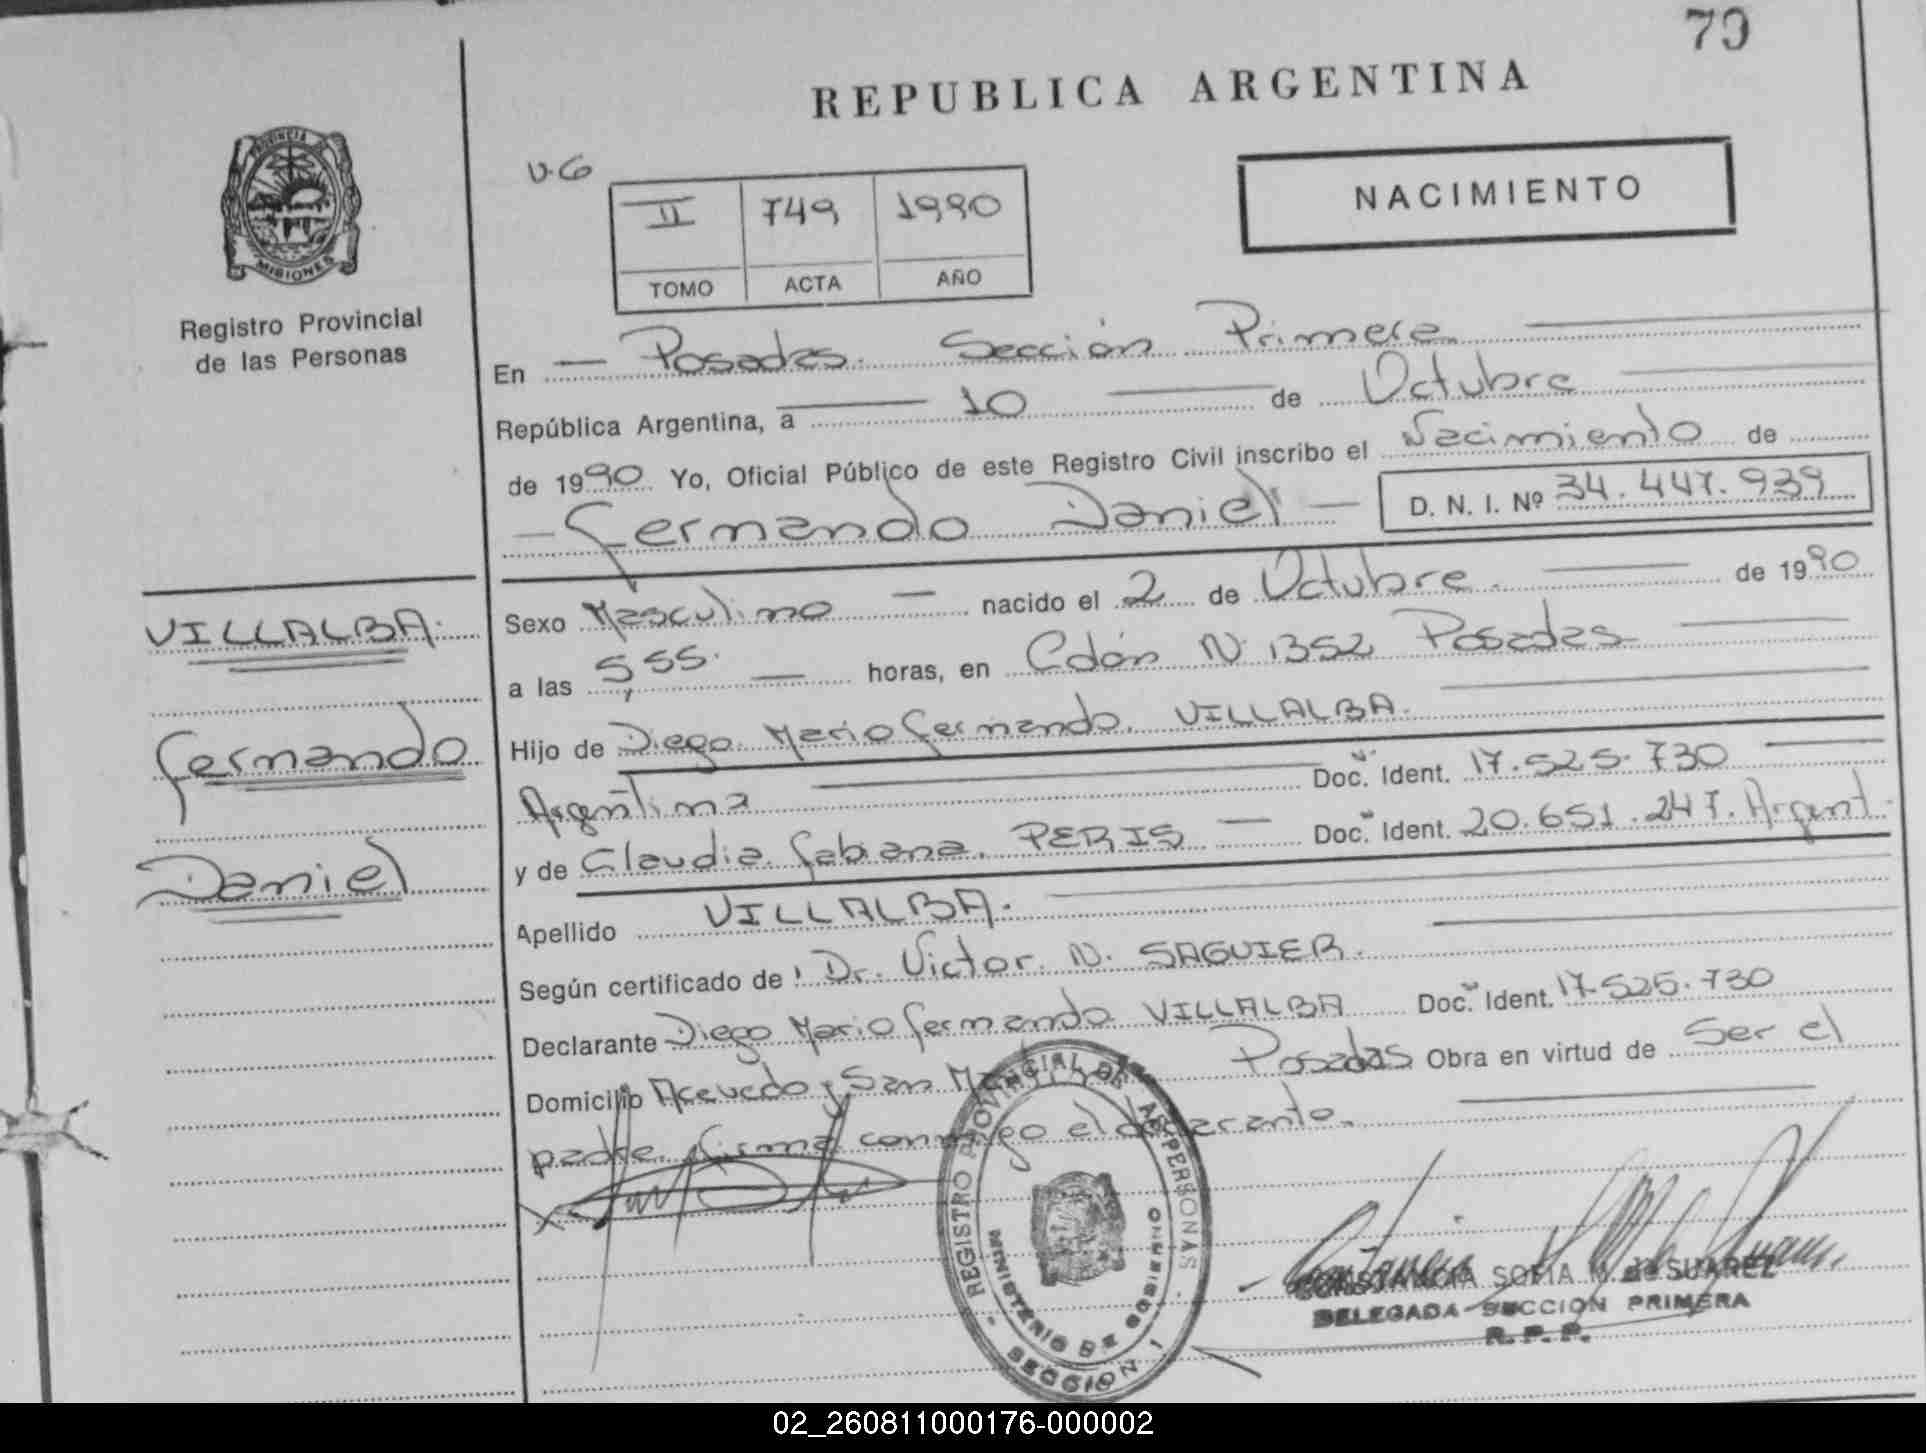 79
REPUBLICA ARGENTINA
PROVINCIA DE
MISIONES
Registro Provincial
de las Personas
V.G
II 749 1990
TOMO ACTA AÑO
NACIMIENTO
En — Posadas. Sección Primera
República Argentina, a 10 de Octubre
de 1990 Yo, Oficial Público de este Registro Civil inscribo el Nacimiento de
— Fernando Daniel — D. N. I. Nº 34.447.939
VILLALBA.
Fernando
Daniel
Sexo Masculino — nacido el 2 de Octubre. de 1990
a las 5,55. — horas, en Colón Nº 1352 Posadas
Hijo de Diego Mario Fernando. VILLALBA.
Argentina Doc. Ident. 17.525.730
y de Claudia Fabiana. PERIS — Doc. Ident. 20.651.247. Argent.
Apellido VILLALBA.
Según certificado de Dr. Victor. N. SAGUIER.
Declarante Diego Mario Fernando VILLALBA Doc. Ident. 17.525.730
Domicilio Acevedo y San Posadas Obra en virtud de Ser el
padre. Firma conmigo el declarante.
REGISTRO PROVINCIAL DE LAS PERSONAS
MINISTERIO DE GOBIERNO
SECCION 1
CONSTANCIA SOFIA M. de SUAREZ
DELEGADA SECCION PRIMERA
R. P. P.
02_260811000176-000002